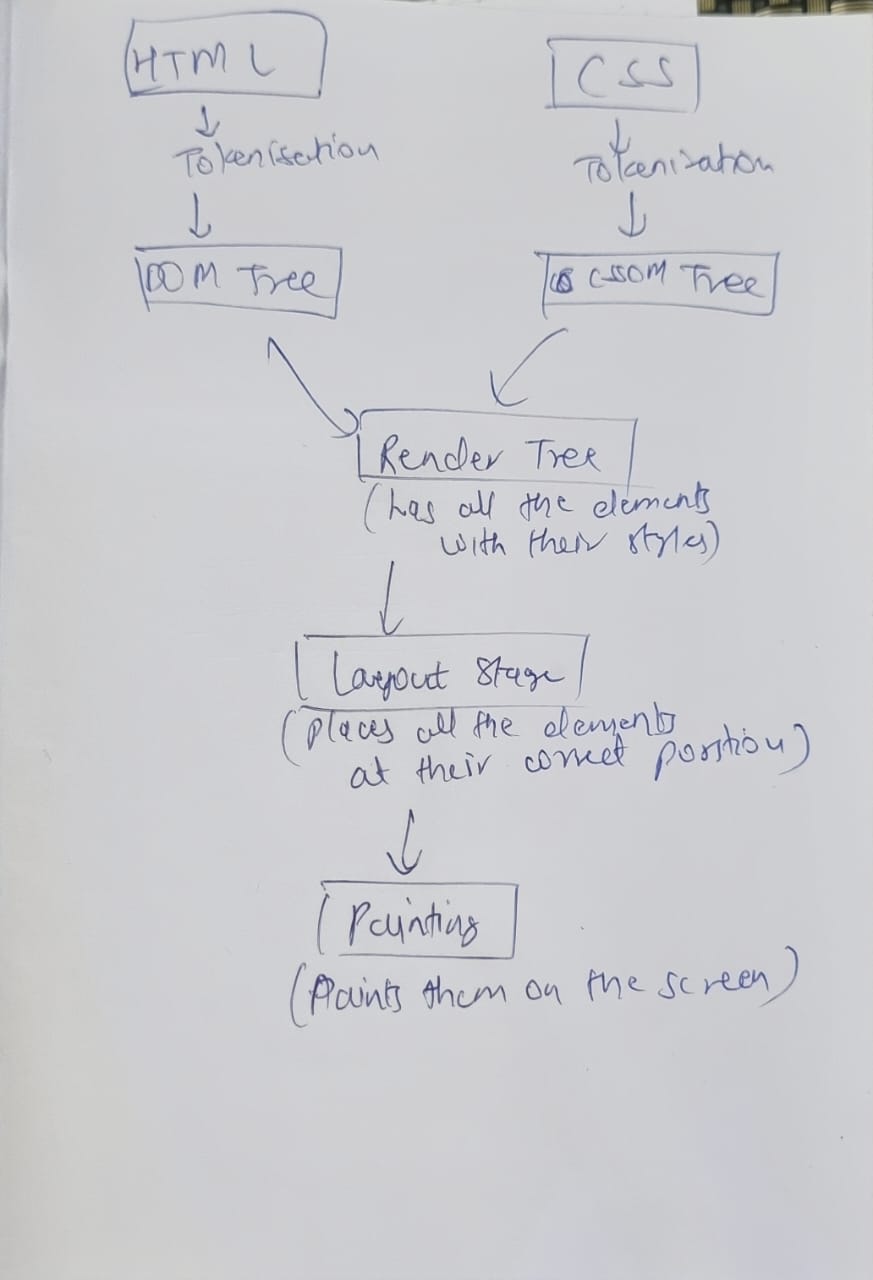 HTML
CSS
Tokenisation
Tokenization
DOM Tree
CSOM Tree
Render Tree
(has all the elements
with their styles)
Layout Stage
(places all the elements
at their correct position)
Painting
(Paints them on the screen)